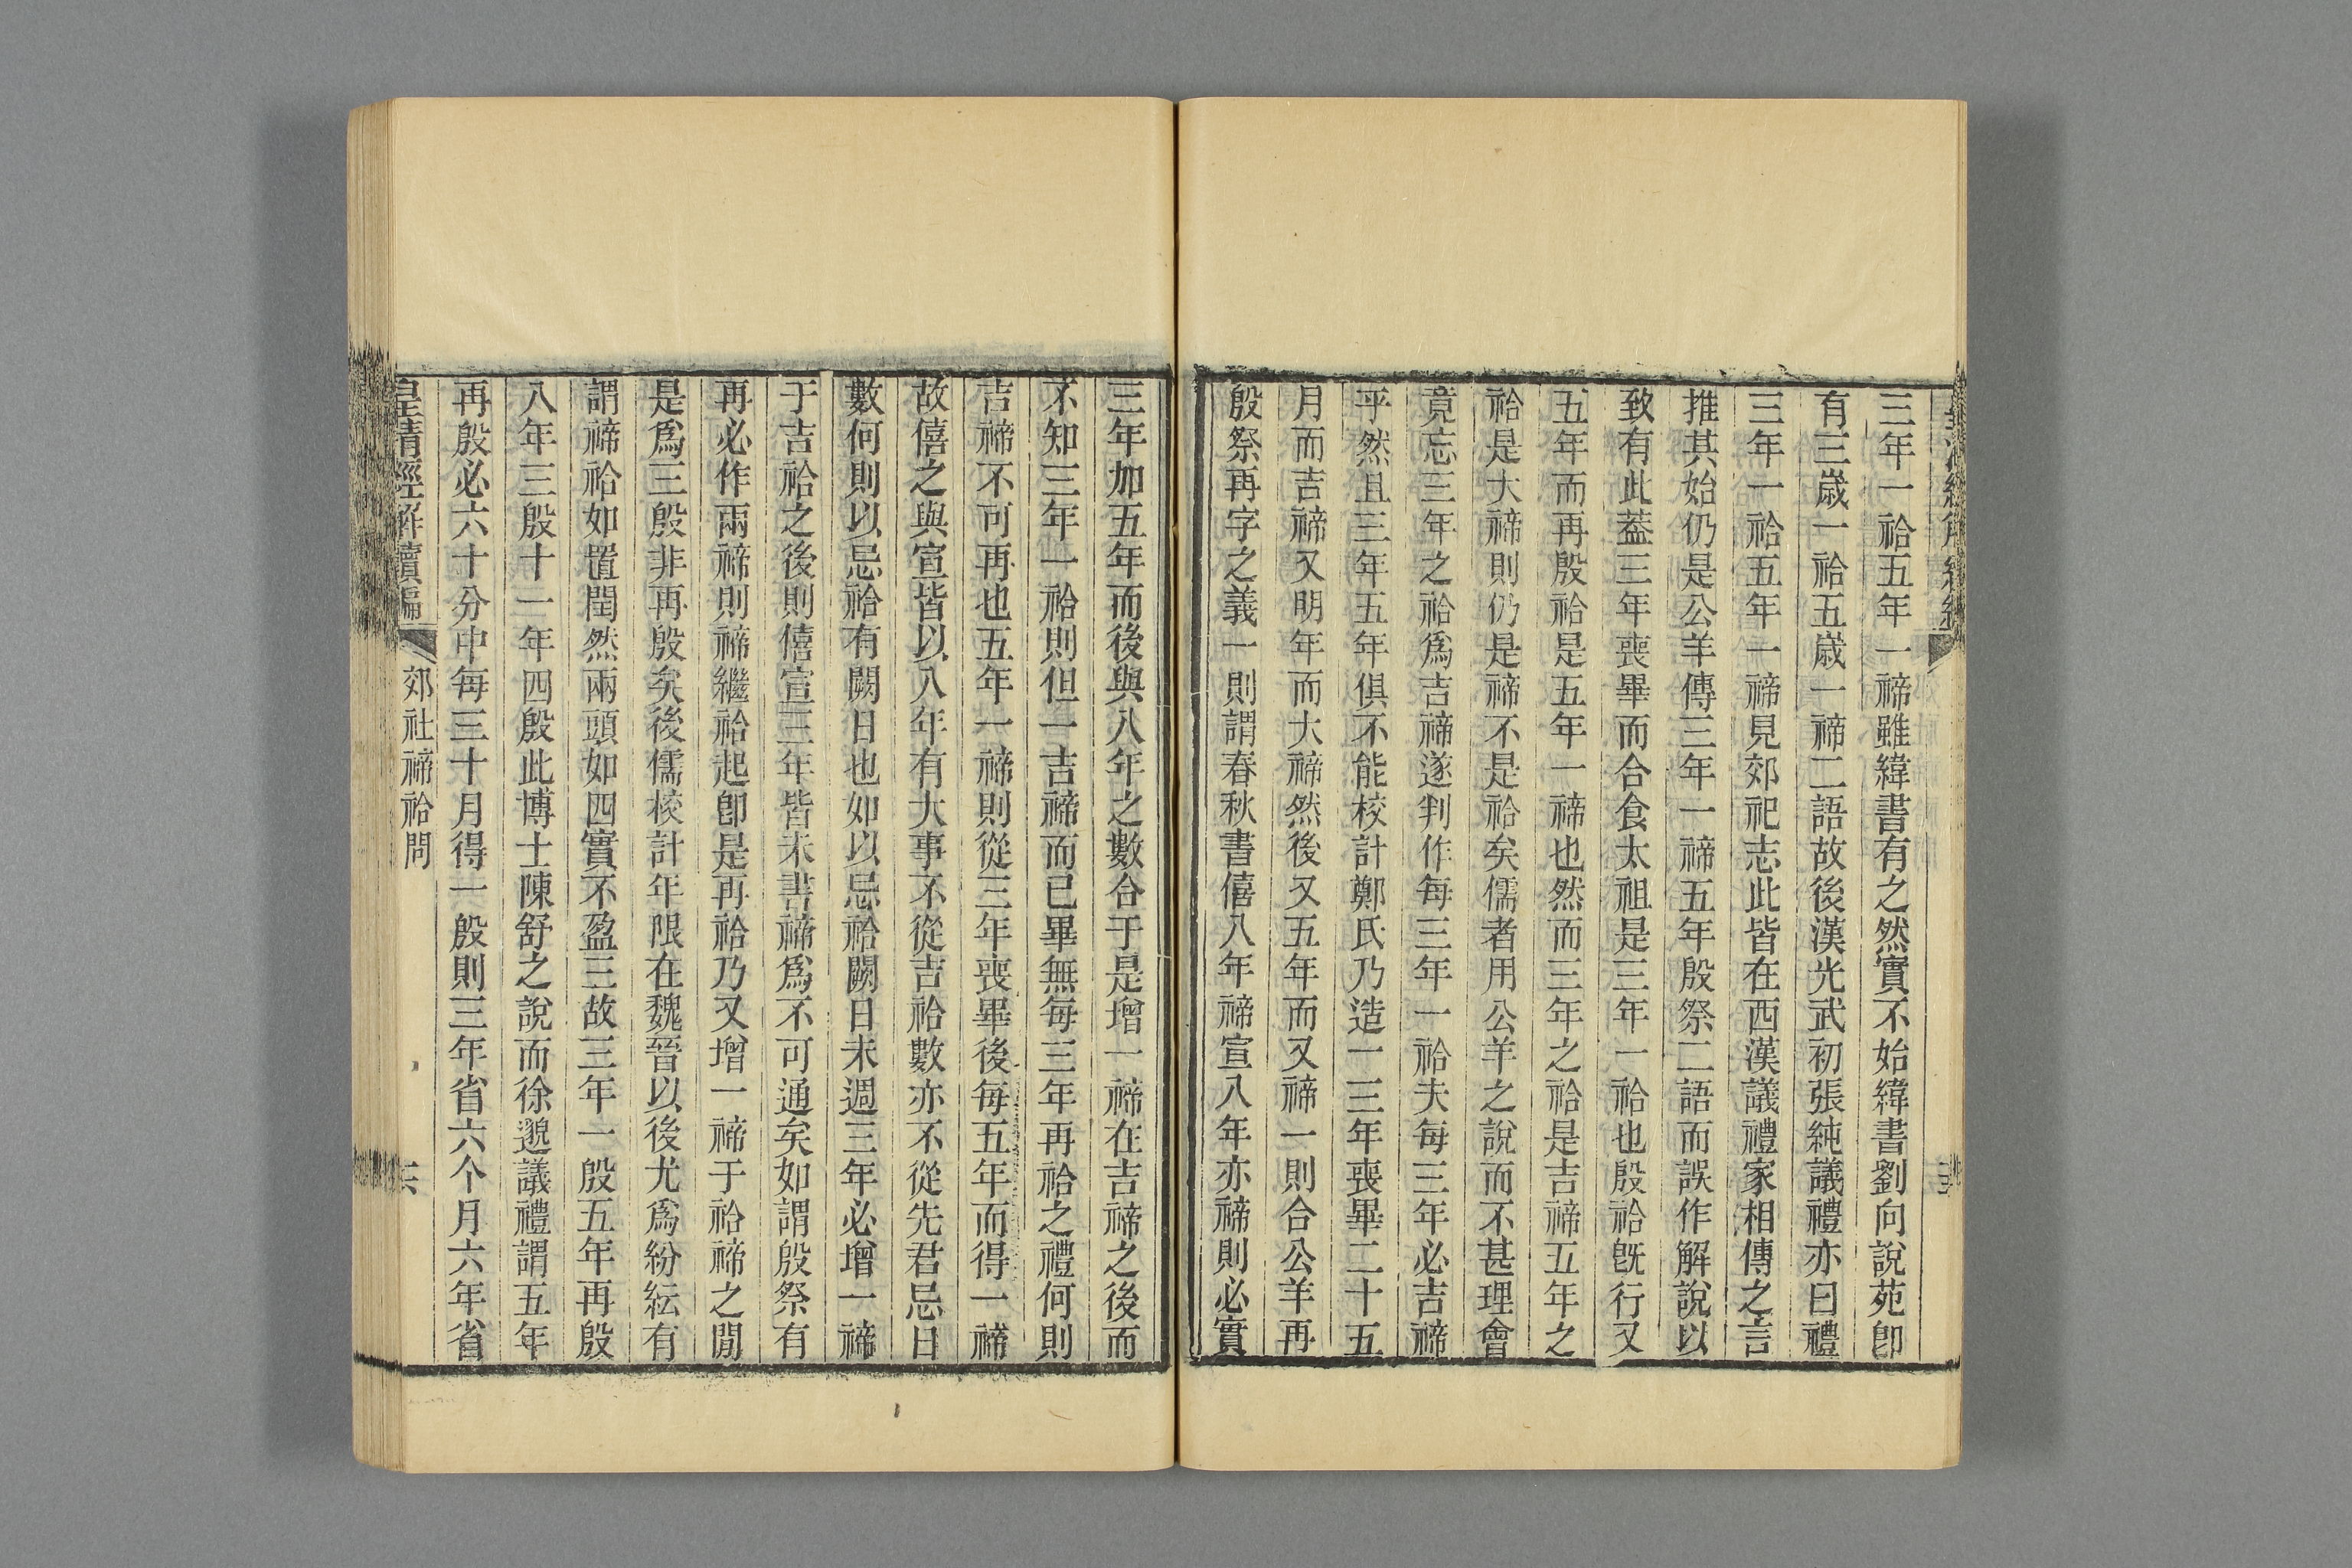 三年一祫五年一禘雖緯書有之然實不始緯書劉向說苑卽
有三歲一祫五歲一禘二語故後漢光武初張純議禮亦曰禮
三年一祫五年一禘見郊祀志此皆在西漢議禮家相傳之言
推其始仍是公羊傳三年一禘五年殷祭二語而誤作解說以
致有此葢三年喪畢而合食太祖是三年一祫也殷祫旣行又
五年而再殷祫是五年一禘也然而三年之祫是吉禘五年之
祫是大禘則仍是禘不是祫矣儒者用公羊之說而不甚理會
竟忘三年之祫爲吉禘遂判作每三年一祫夫每三年必吉禘
乎然且三年五年俱不能校計鄭氏乃造一三年喪畢二十五
月而吉禘又明年而大禘然後又五年而又禘一則合公羊再
殷祭再字之義一則謂春秋書僖八年禘宣八年亦禘則必實
三年加五年而後與八年之數合于是增一禘在吉禘之後而
不知三年一祫則但一吉禘而已畢無每三年再祫之禮何則
吉禘不可再也五年一禘則從三年喪畢後每五年而得一禘
故僖之與宣皆以八年有大事不從吉祫數亦不從先君忌日
數何則以忌祫有闕日也如以忌祫闕日未週三年必增一禘
于吉祫之後則僖宣三年皆未書禘爲不可通矣如謂殷祭有
再必作兩禘則禘繼祫起卽是再祫乃又增一禘于祫禘之閒
是爲三殷非再殷矣後儒校計年限在魏晉以後尤爲紛紜有
謂禘祫如置閏然兩頭如四實不盈三故三年一殷五年再殷
八年三殷十一年四殷此博士陳舒之說而徐邈議禮謂五年
再殷必六十分中每三十月得一殷則三年省六个月六年省
皇淸經解續編
郊社禘祫問